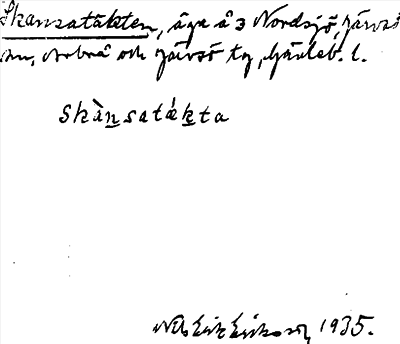 Skansatäkten, äga å 3 Nordsjö, Järvsö
sn, Arbrå och Järvsö tg, Gävleb. l.
Skànsatǽkta
Nils Erik Eriksson, 1935.